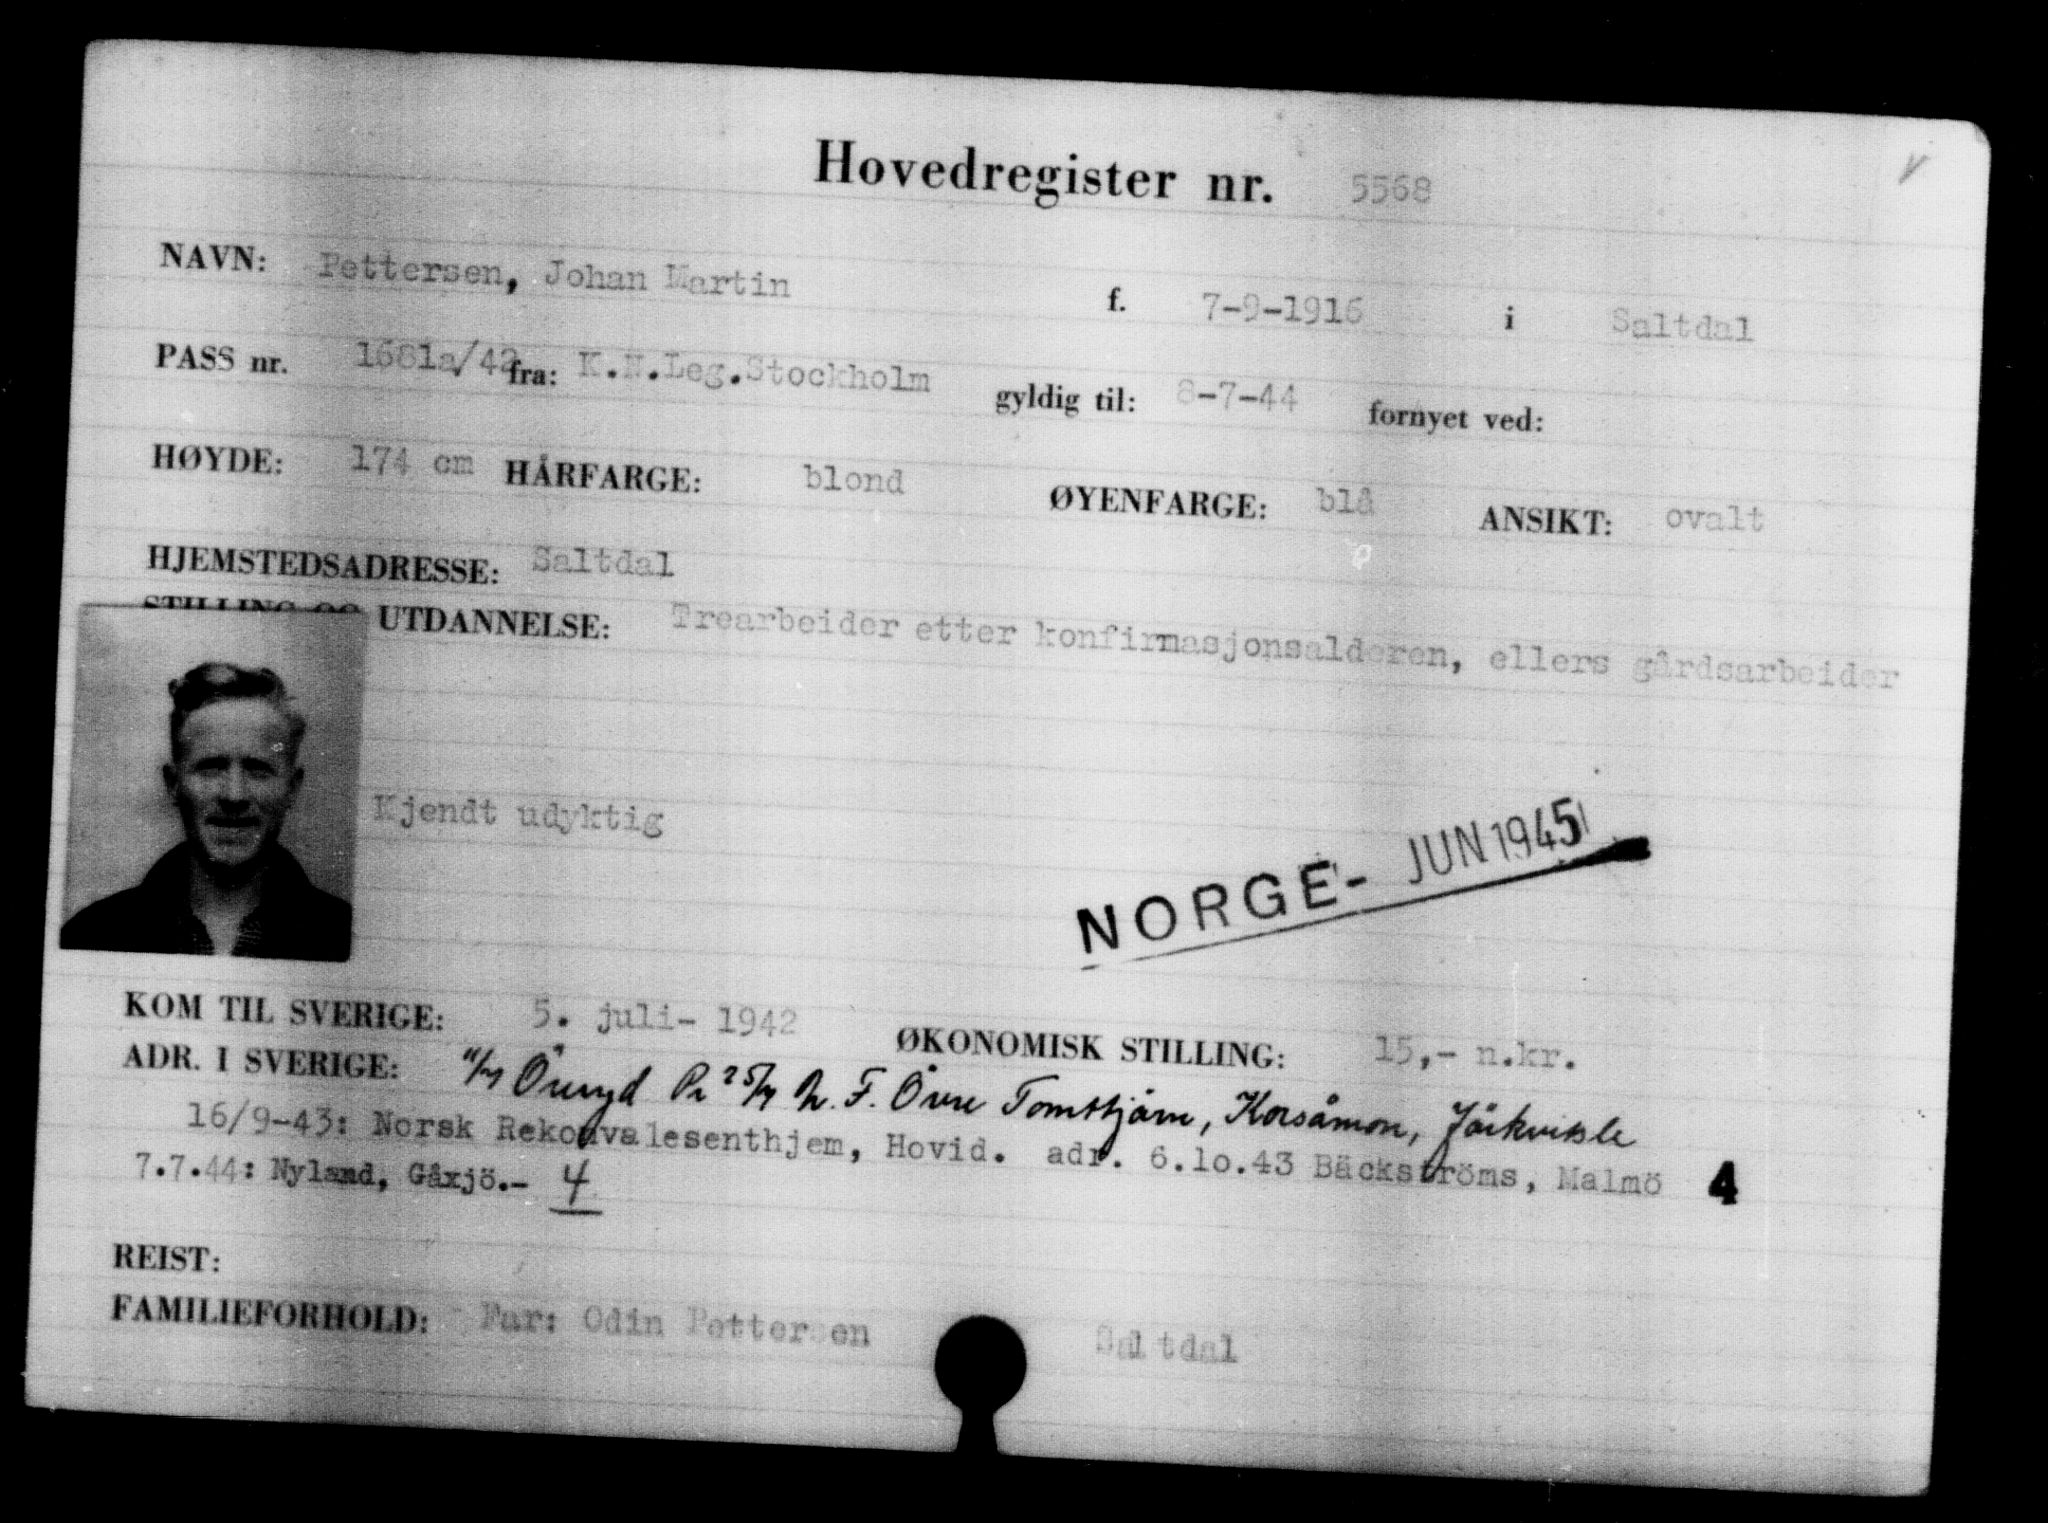 Hovedregister nr. 5568
NAVN: Pettersen, Johan Martin f. 7-9-1916 i Saltdal
PASS nr. 1681a/42 fra: K.N.Leg.Stockholm gyldig til: 8-7-44 fornyet ved:
HØYDE: 174 cm HÅRFARGE: blond ØYENFARGE: blå ANSIKT: ovalt
HJEMSTEDSADRESSE: Saltdal
STILLING OG UTDANNELSE: Trearbeider etter konfirmasjonsalderen, ellers gårdsarbeider
Kjendt udyktig
NORGE- JUN 1945
KOM TIL SVERIGE: 5. juli- 1942 ØKONOMISK STILLING: 15,- n.kr.
ADR. I SVERIGE: 11/7 Öreryd 25/7 F. Övre Tomtkjärn, Korsåmon,
16/9-43: Norsk Rekonvalesenthjem, Hovid. adr. 6.10.43 Bäckströms, Malmö 4
7.7.44: Nyland, Gåxjö.- 4
REIST:
FAMILIEFORHOLD: Far: Odin Pettersen Saltdal